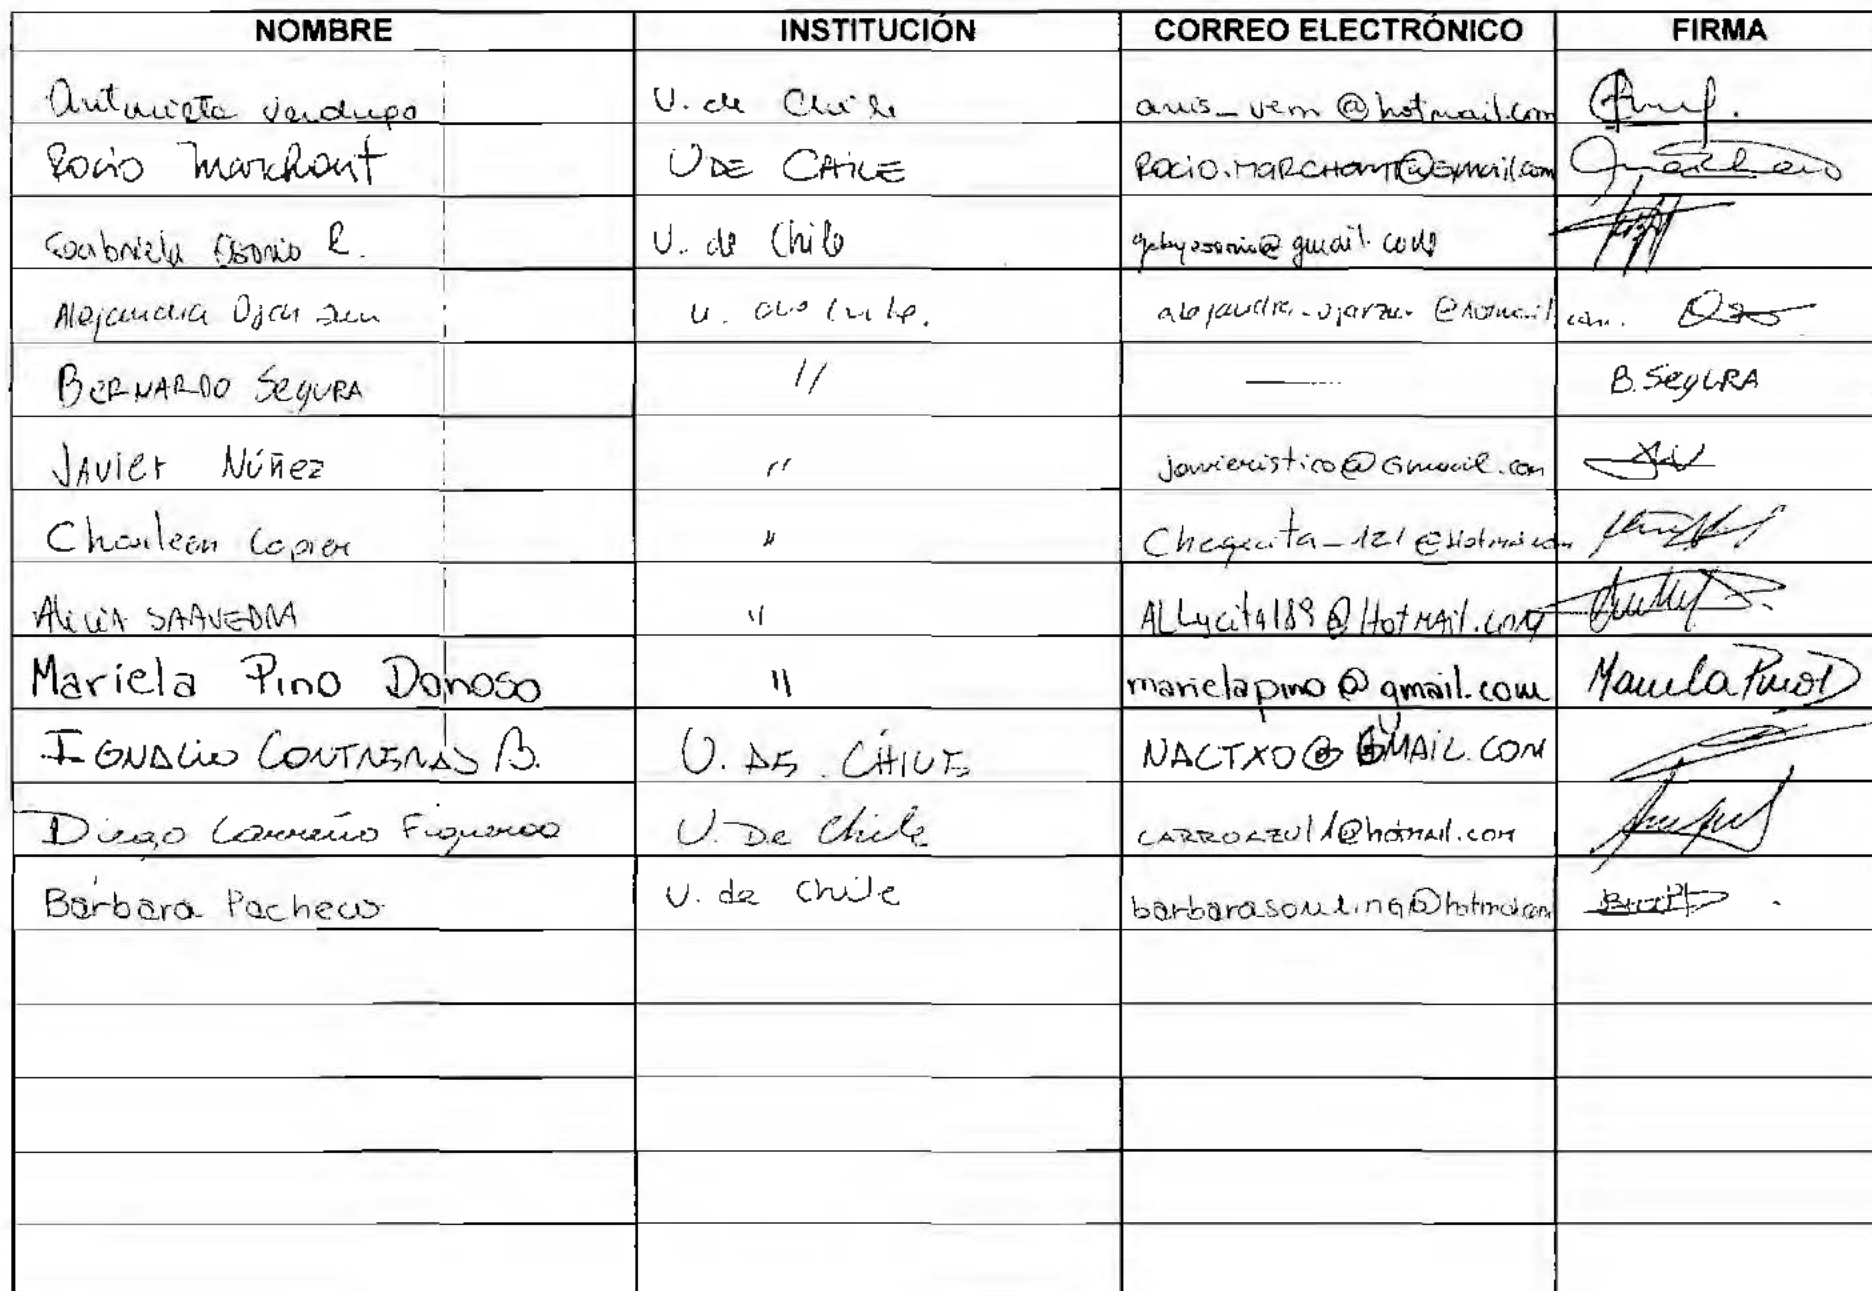 NOMBRE INSTITUCIÓN CORREO ELECTRÓNICO FIRMA
Antonieta Verdugo U. de Chile anis_vem@hotmail.com
Rocio Marchant U DE CHILE ROCIO.MARCHANT@Gmail.com
Gabriela Osorio R. U. de Chile gabyosorio@gmail.com
Alejandra Ojarzun U. de Chile. alejandra-ojarzun@hotmail.com.
BERNARDO SegURA // — B. SegURA
JAVIER Núñez " javieristico@Gmail.com
Charleen "
Alicia SAAVEDRA " ALLycita189@HotMAil.com
Mariela Pino Donoso " marielapino@gmail.com Mariela Pino D
IGNACIO CONTRERAS B. U. DE CHILE NACTXO@GMAIL.COM
Diego Carreño Figueroa U. De Chile CARROAZUL1@hotmail.com
Bárbara Pacheco U. de Chile